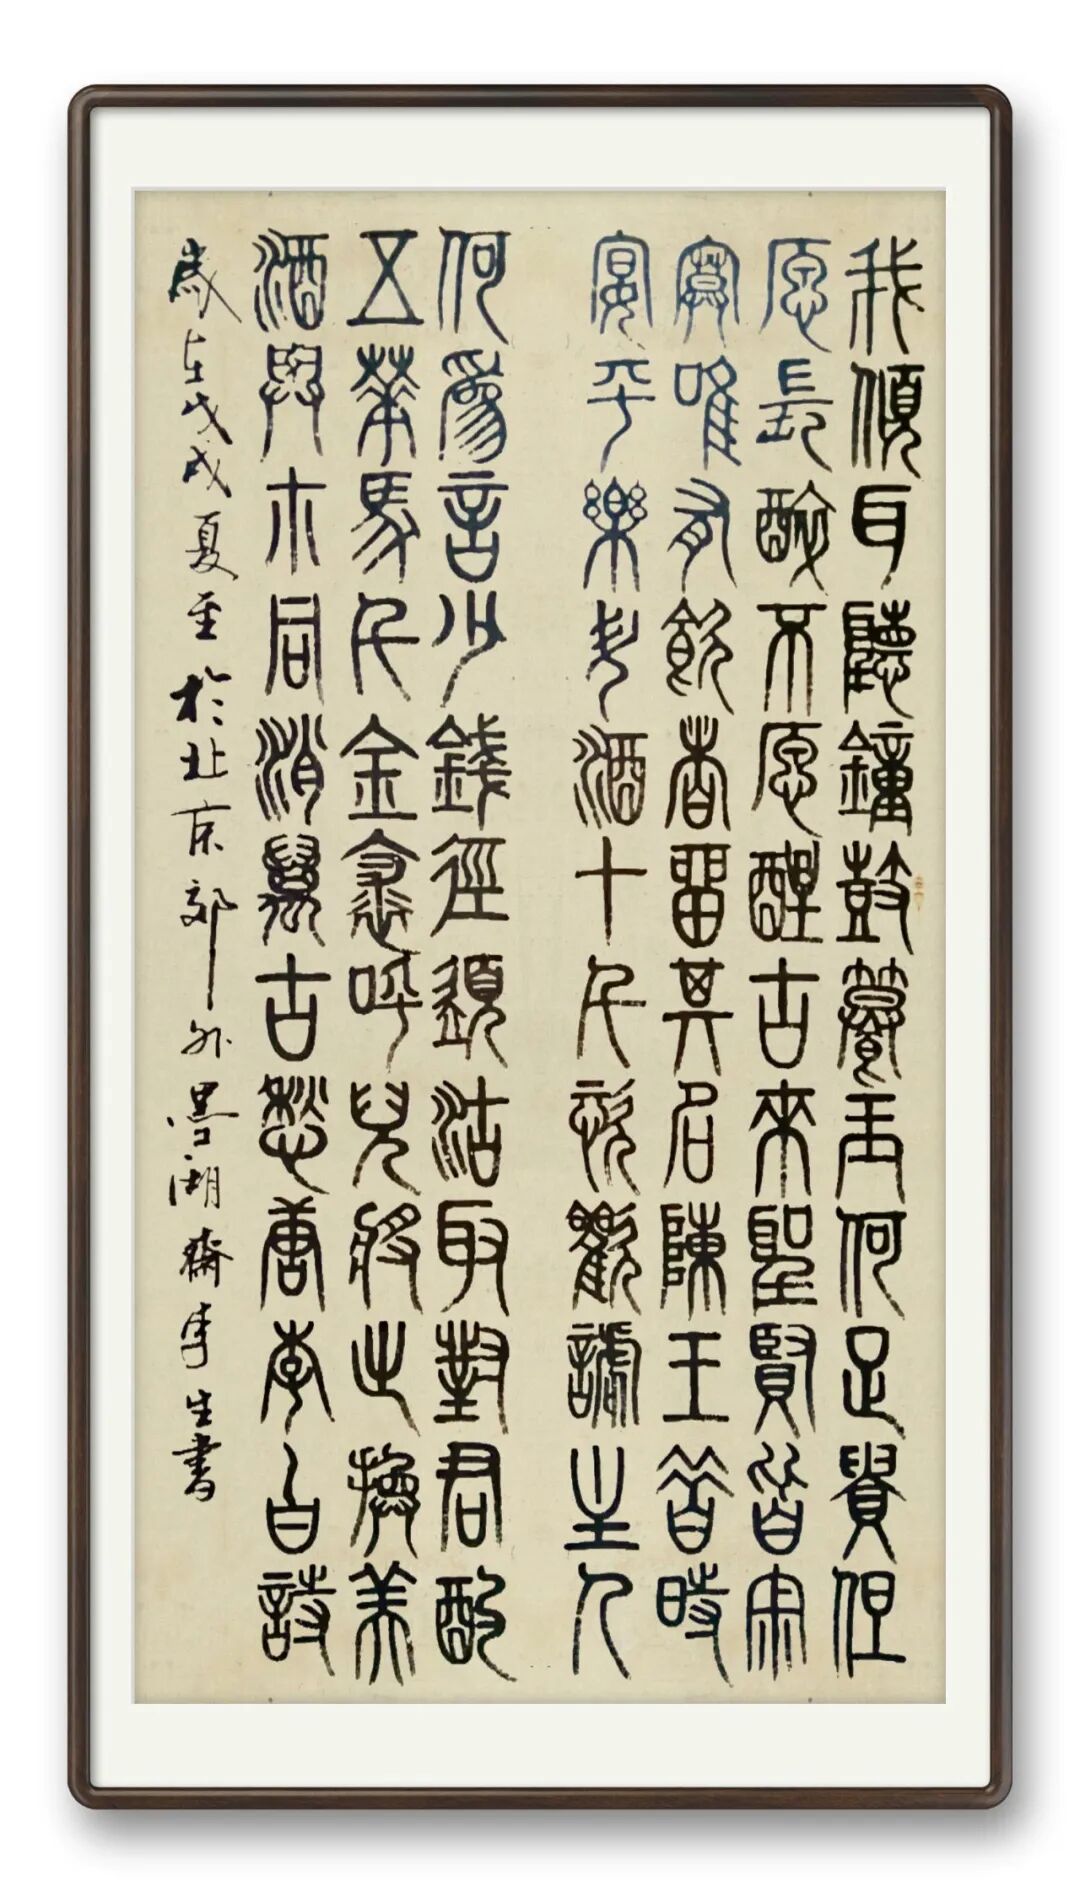 我傾耳聽鐘鼓饌玉何足貴但
愿長醉不愿醒古來聖賢皆寂
寞唯有飲者留其名陳王昔時
宴平樂斗酒十千恣歡謔主人
何為言少錢徑須沽取對君酌
五華馬千金裘呼兒將出換美
酒與尒同消萬古愁唐李白詩
歲在戊戌夏至於北京郊外墨湖齋李生書